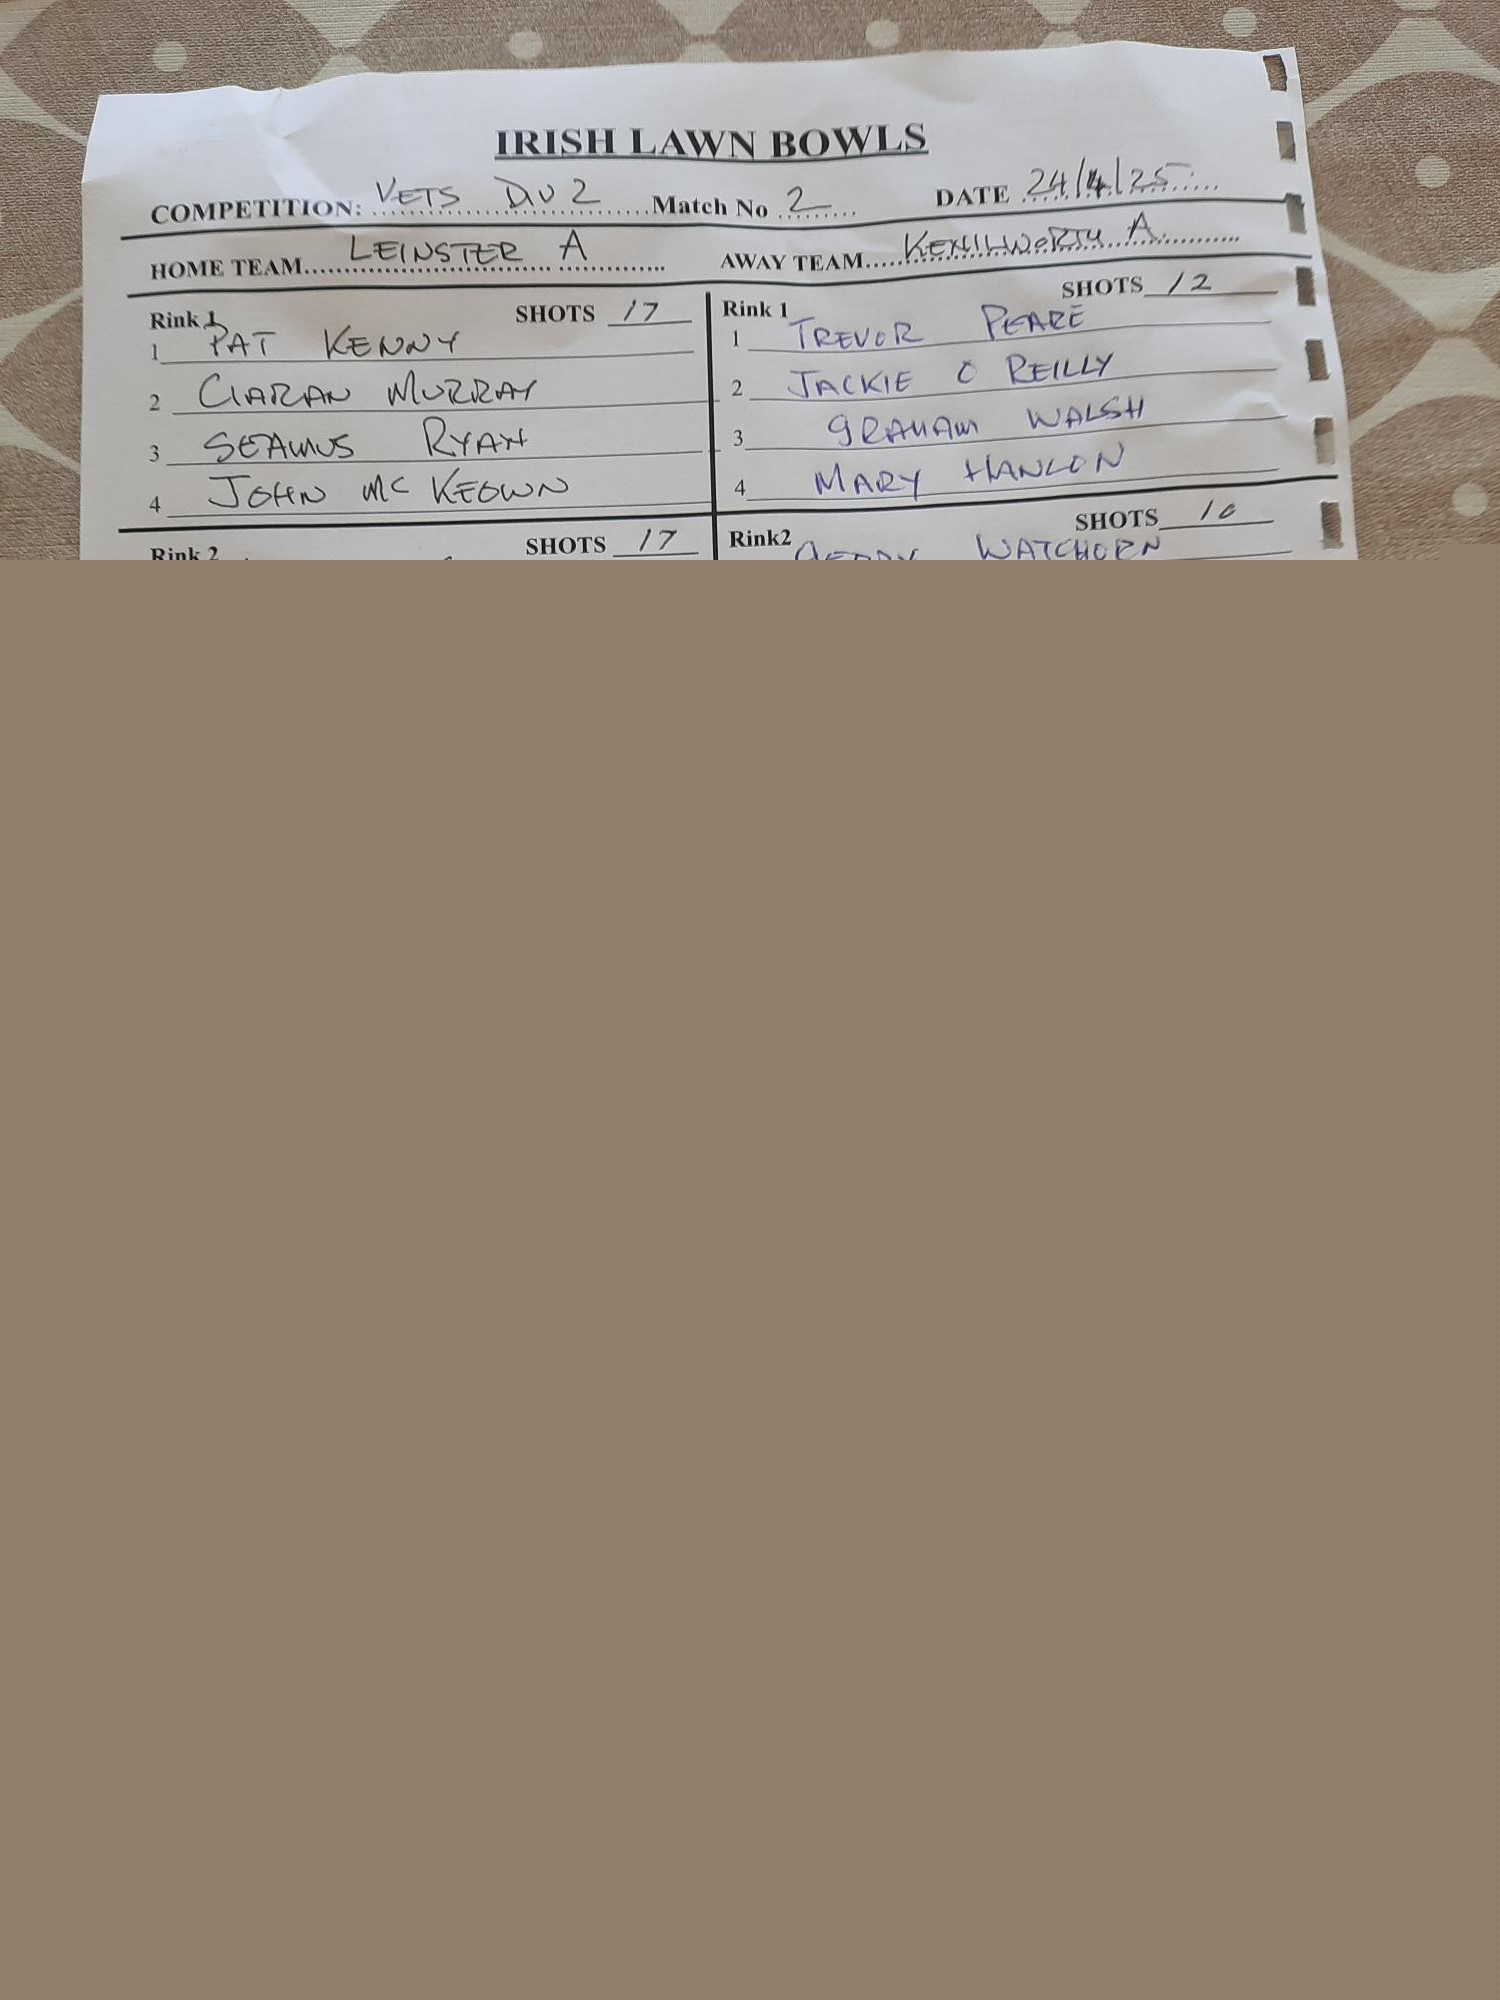 IRISH LAWN BOWLS
COMPETITION: VETS DIV 2 Match No 2 DATE 24/4/25
HOME TEAM LEINSTER A AWAY TEAM KENILWORTH A
Rink 1 SHOTS 17
1 PAT KENNY
2 CIARAN MURRAY
3 SEAMUS RYAN
4 JOHN MC KEOWN
Rink 1 SHOTS 12
1 TREVOR PEARE
2 JACKIE O REILLY
3 GRAHAM WALSH
4 MARY HANLON
Rink 2 SHOTS 17
Rink2 SHOTS 10
WATCHORN